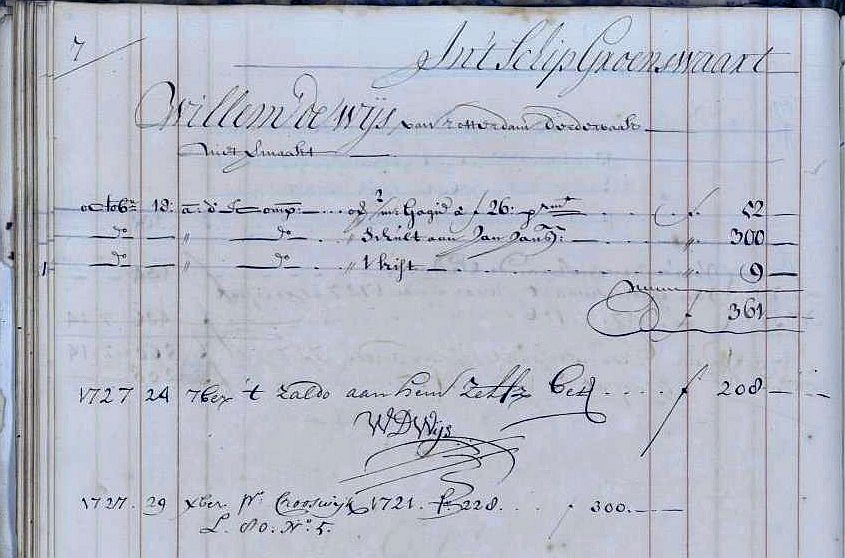 7
In't Schip Groenswaart
Willem de Wijs, van rotterdam derdewaak
niet gmaakt
Octobr 18: a. d' E Comp: .... op 2/m: gagie a f 26: pr mt .. f 52
do — " — do . . " schult aan Jan Jansz: .... " 300
1 do — " — do .. " 1 kist .... " 9
Somm
f 361
1727 24 7ber 't zaldo aan hem zelfs bet .... f 208
WDWijs
1727. 29 xber. Pr. Crooswijk 1721. f 228. . . f 300.
L. 80. No. 5.